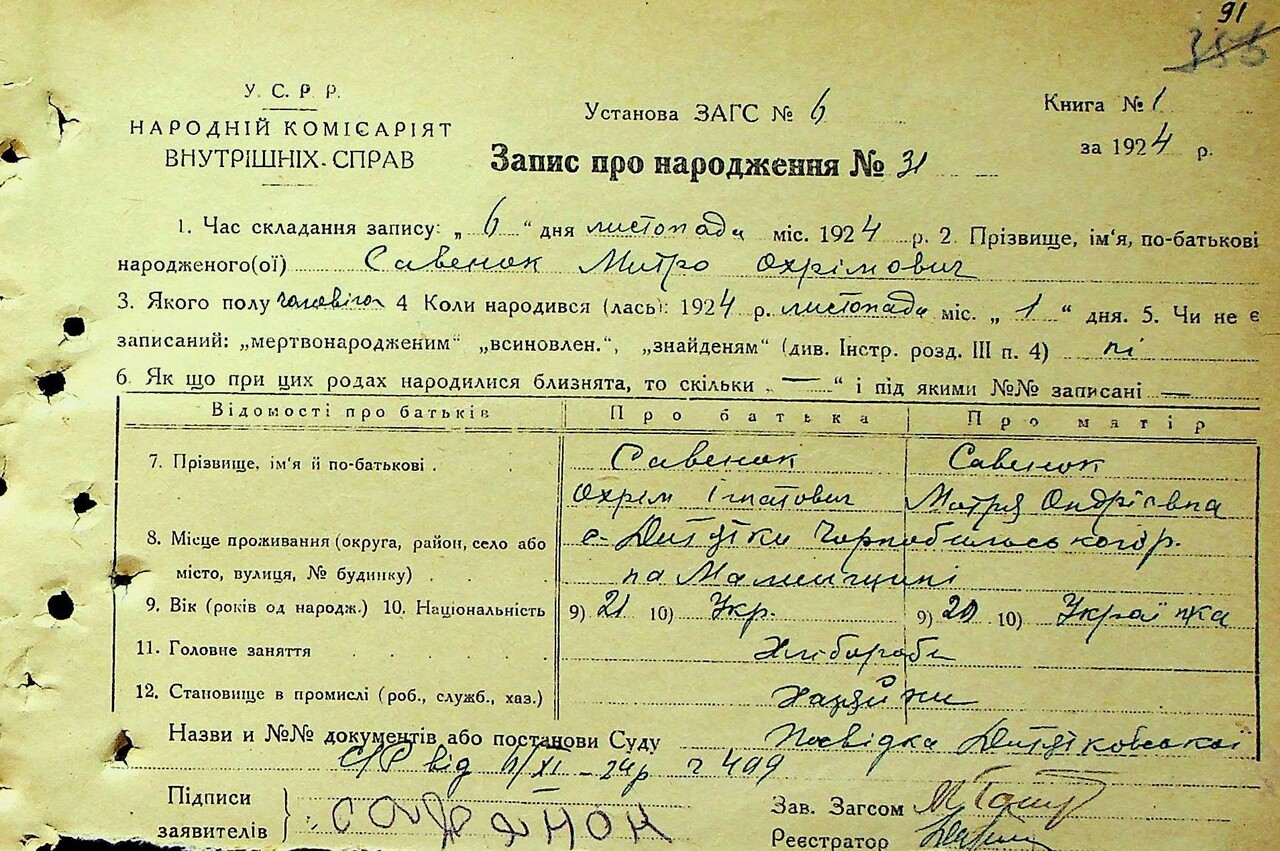 91
У. С. Р. Р.
НАРОДНІЙ КОМІСАРІЯТ
ВНУТРІШНІХ СПРАВ
Установа ЗАГС № 6
Книга № 1
за 1924 р.
Запис про народження № 31
1. Час складання запису: „ 6 “ дня листопада міс. 1924 р. 2. Прізвище, ім‘я, по-батькові
народженого(ої) Савенок Митро Охрімович
3. Якого полу чоловічого 4 Коли народився (лась): 1924 р. листопада міс. „ 1 “ дня. 5. Чи не є
записаний: „мертвонародженим“ „всиновлен.“, „знайденям“ (див. Інстр. розд. III п. 4) ні
6. Як що при цих родах народилися близнята, то скільки „ — “ і під якими №№ записані —
Відомості про батьків Про батька Про матір
7. Прізвище, ім‘я й по-батькові . Савенок Савенок
Охрім Ігнатович Мотря Ондріівна
8. Місце проживання (округа, район, село або с. Дитятки Чорнобильського р.
місто, вулиця, № будинку) . на Малинщині
9. Вік (років од народж.) 10. Національність 9) 21 10) Укр. 9) 20 10) Українка
11. Головне заняття Хлібороби
12. Становище в промислі (роб., служб., хаз.) Хазяїни
Назви и №№ документів або постанови Суду Посвідка Дитятковської
С/Р від /XI - 24р ч 499
Підписи
заявителів
Савенок
Зав. Загсом
Реєстратор